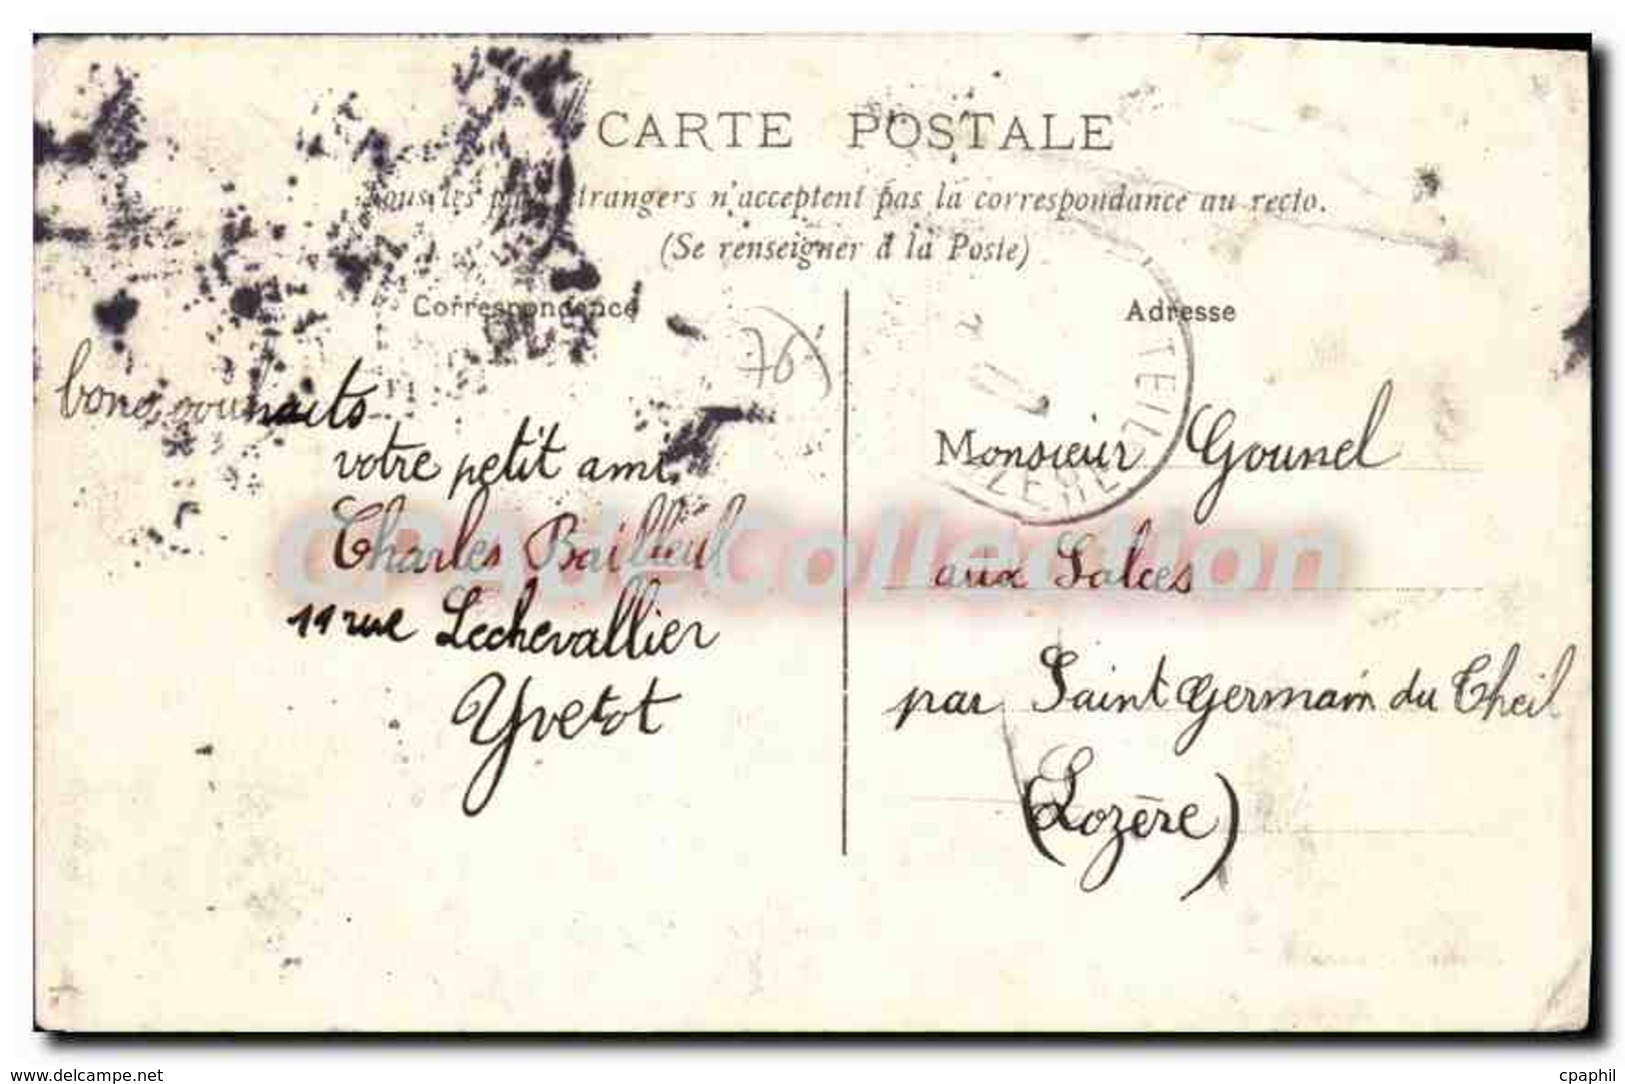 CARTE POSTALE
Tous les étrangers n'acceptent pas la correspondance au recto.
(Se renseigner à la Poste)
Correspondance
Adresse
76
TEIL
LOZERE
bons souhaits
votre petit ami
Charles Bailleul
11 rue Lechevallier
Yvetot
Monsieur Gounel
aux Salces
par Saint Germain du Theil
(Lozère)
CPAdeCollection
www.delcampe.net
cpaphil